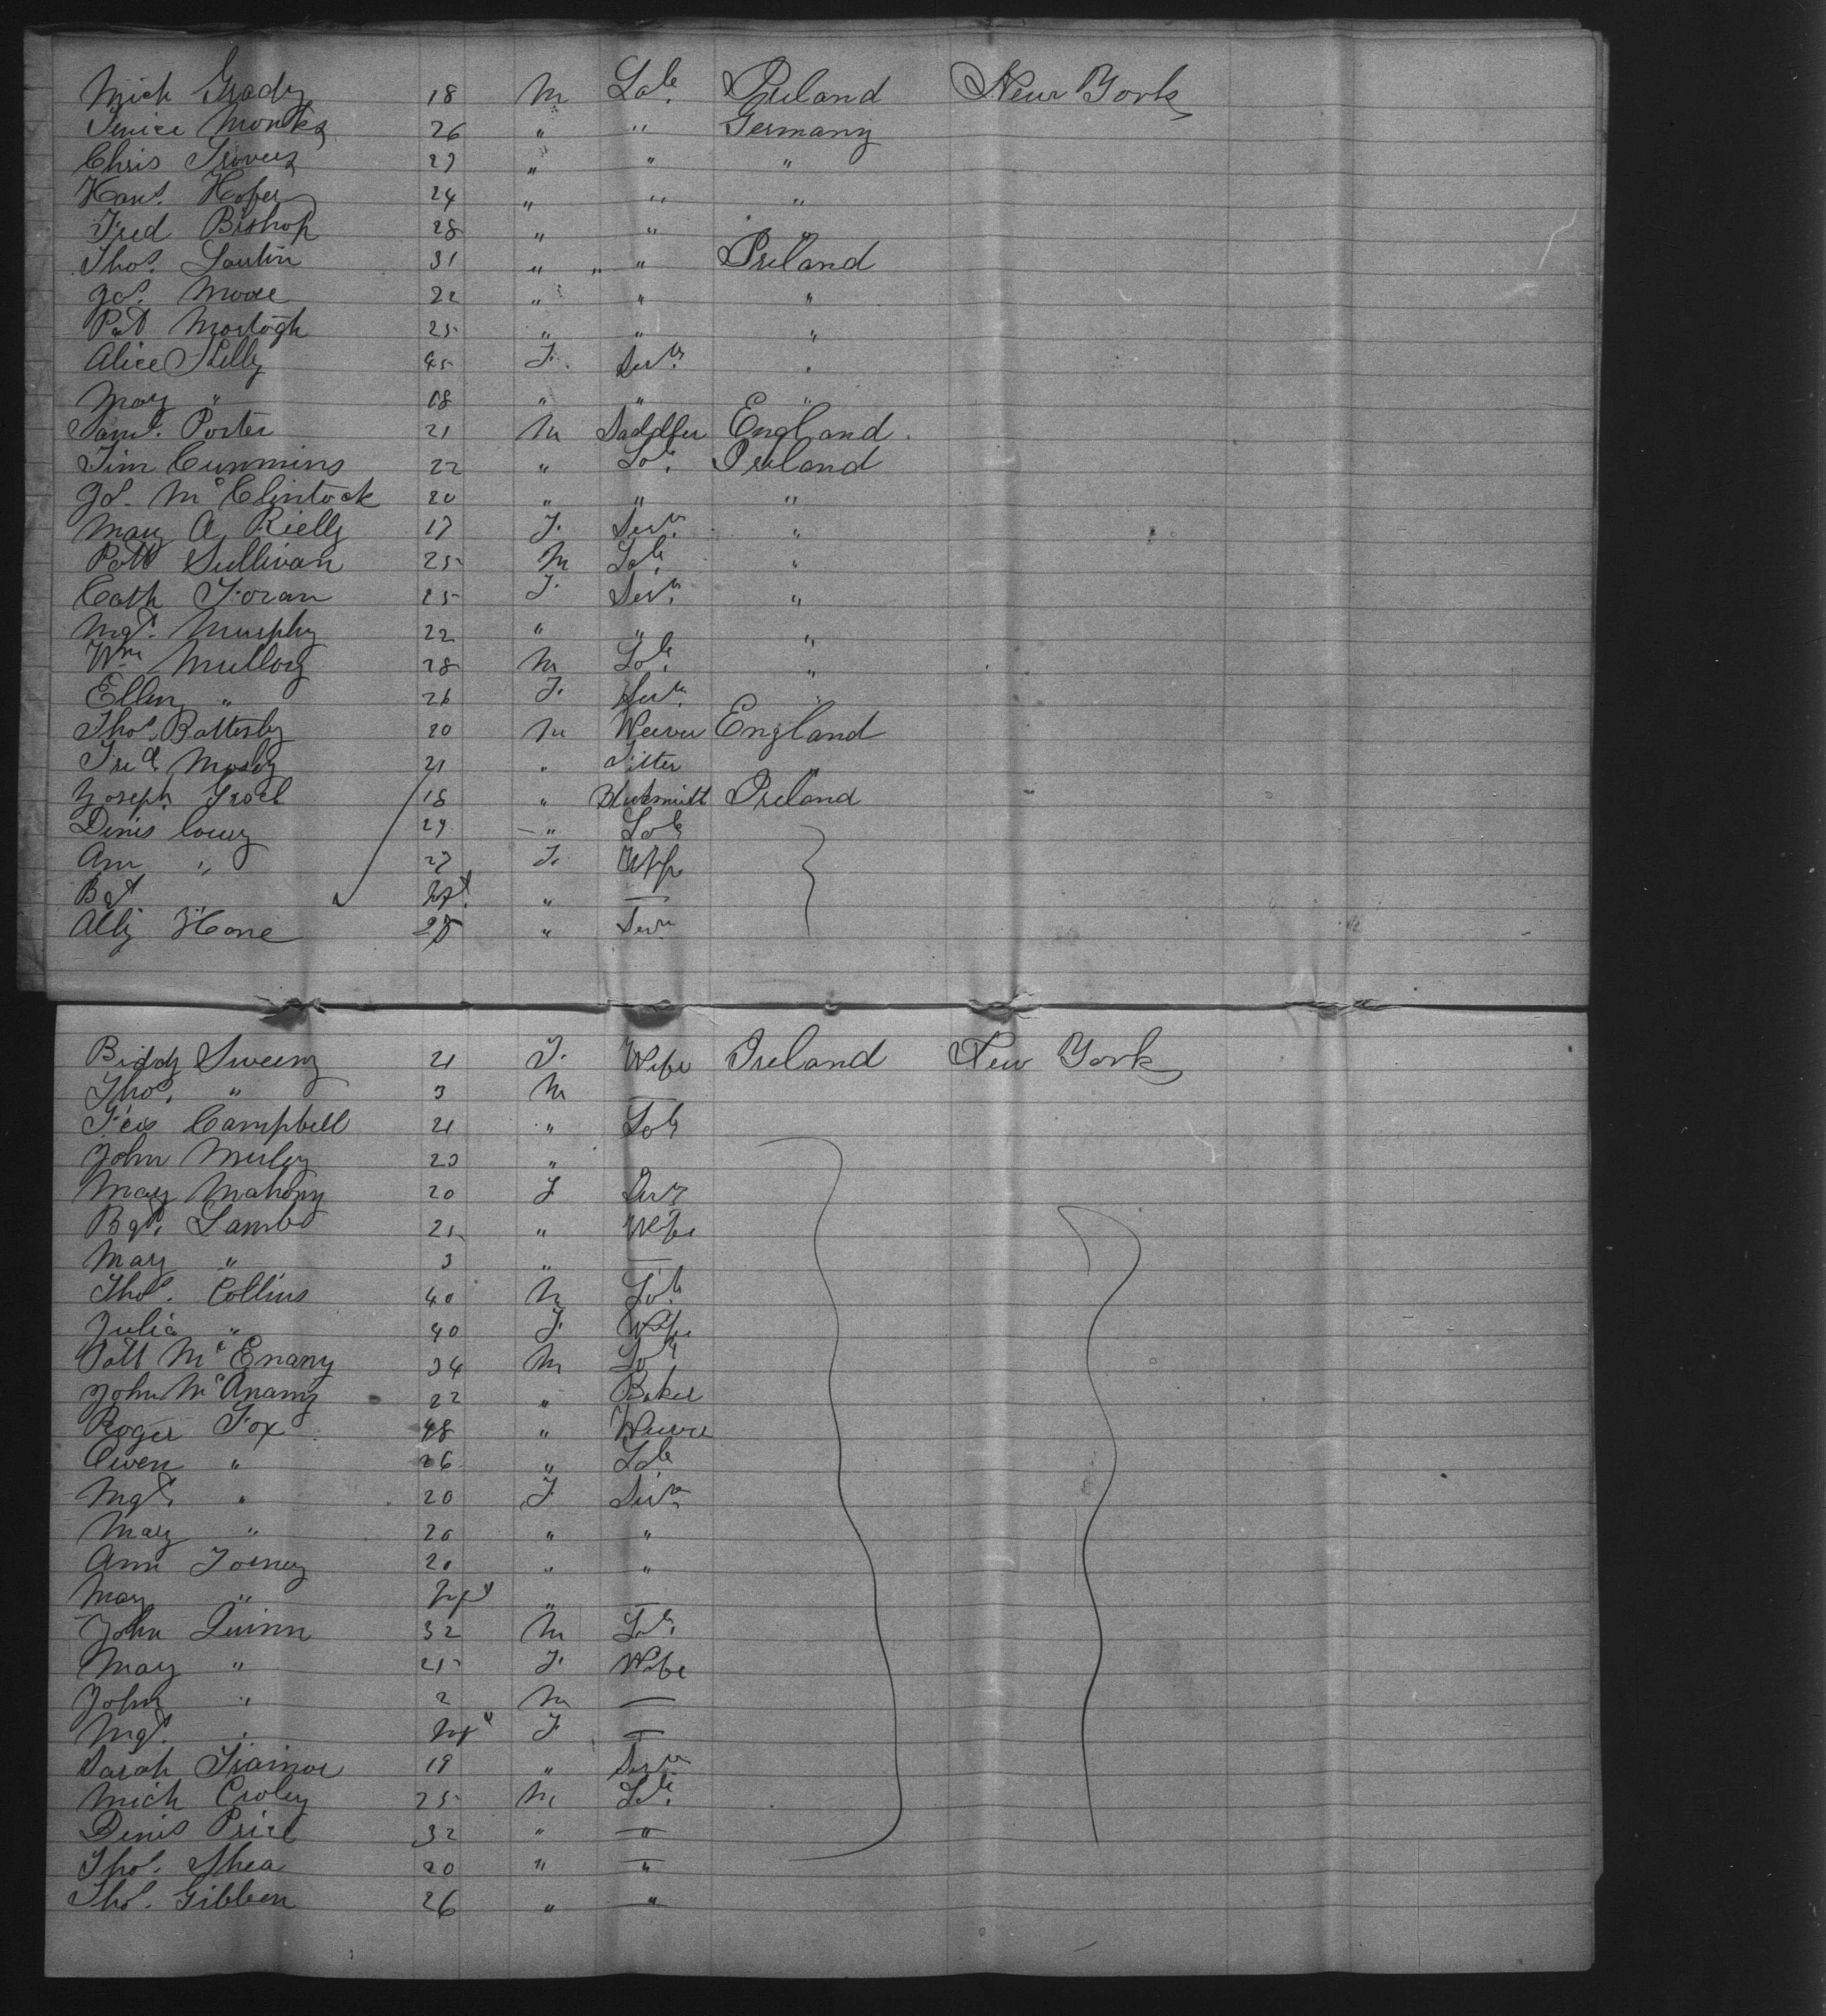 Mich Grady 18 M Labr. Ireland New York
Monks 26 " " Germany
Chris Travers 27 " " "
Hans. Hofer 24 " " "
Fred Bishop 28 " " "
Thos. Lantin 31 " " " Ireland
Jas. Moore 22 " " "
Pat Mortogh 25 " " "
Alice Kelly 45 F. Servt. "
Mary " 18 " " "
Saml. Porter 21 M Saddler England.
Tim Cummins 22 " Labr. Ireland
Jas. McClintock 20 " " "
Mary A Rielly 17 F. Servt. "
Patk Sullivan 25 M Labr. "
Cath Foran 25 F. Servt. "
Mgt. Murphy 22 " " "
Wm Mullory 28 M Labr. "
Ellen " 26 F. Servt. "
Thos. Battersby 20 M Weever England
Fredk Mosby 21 " Fitter "
Joseph 18 " Blcksmitt Ireland
Denis 29 " Labr
Ann " 27 F. Wife
Bgt Inft. " —
Ally Hone 25 " Servt
Biddy Sweeny 21 F. Wife Ireland New York
Thos. " 3 M —
Fras Campbell 21 " Labr
John 20 "
Mary Mahony 20 F Servt
Bgt. Lambe 25 " Wife
Mary " 3 " —
Thos. Collins 40 M Labr.
Julia " 40 F. Wife
Patt McEnany 34 M Labr
John McAnamy 22 " Baker
Roger Fox 48 " Weever
Owen " 26 " Labr
Mgt. " 20 F Servt.
Mary " 20 " "
Ann Torney 20 " "
Mary " Inft " —
John Quinn 32 M Labr.
Mary " 25 F. Wife
John " 2 M —
Mgt. " Inft F —
Sarah Trainor 19 " Servt.
Mich Croley 25 M Labr.
Denis Price 32 " "
Thos. Shea 20 " "
Thos. Gibben 26 " "